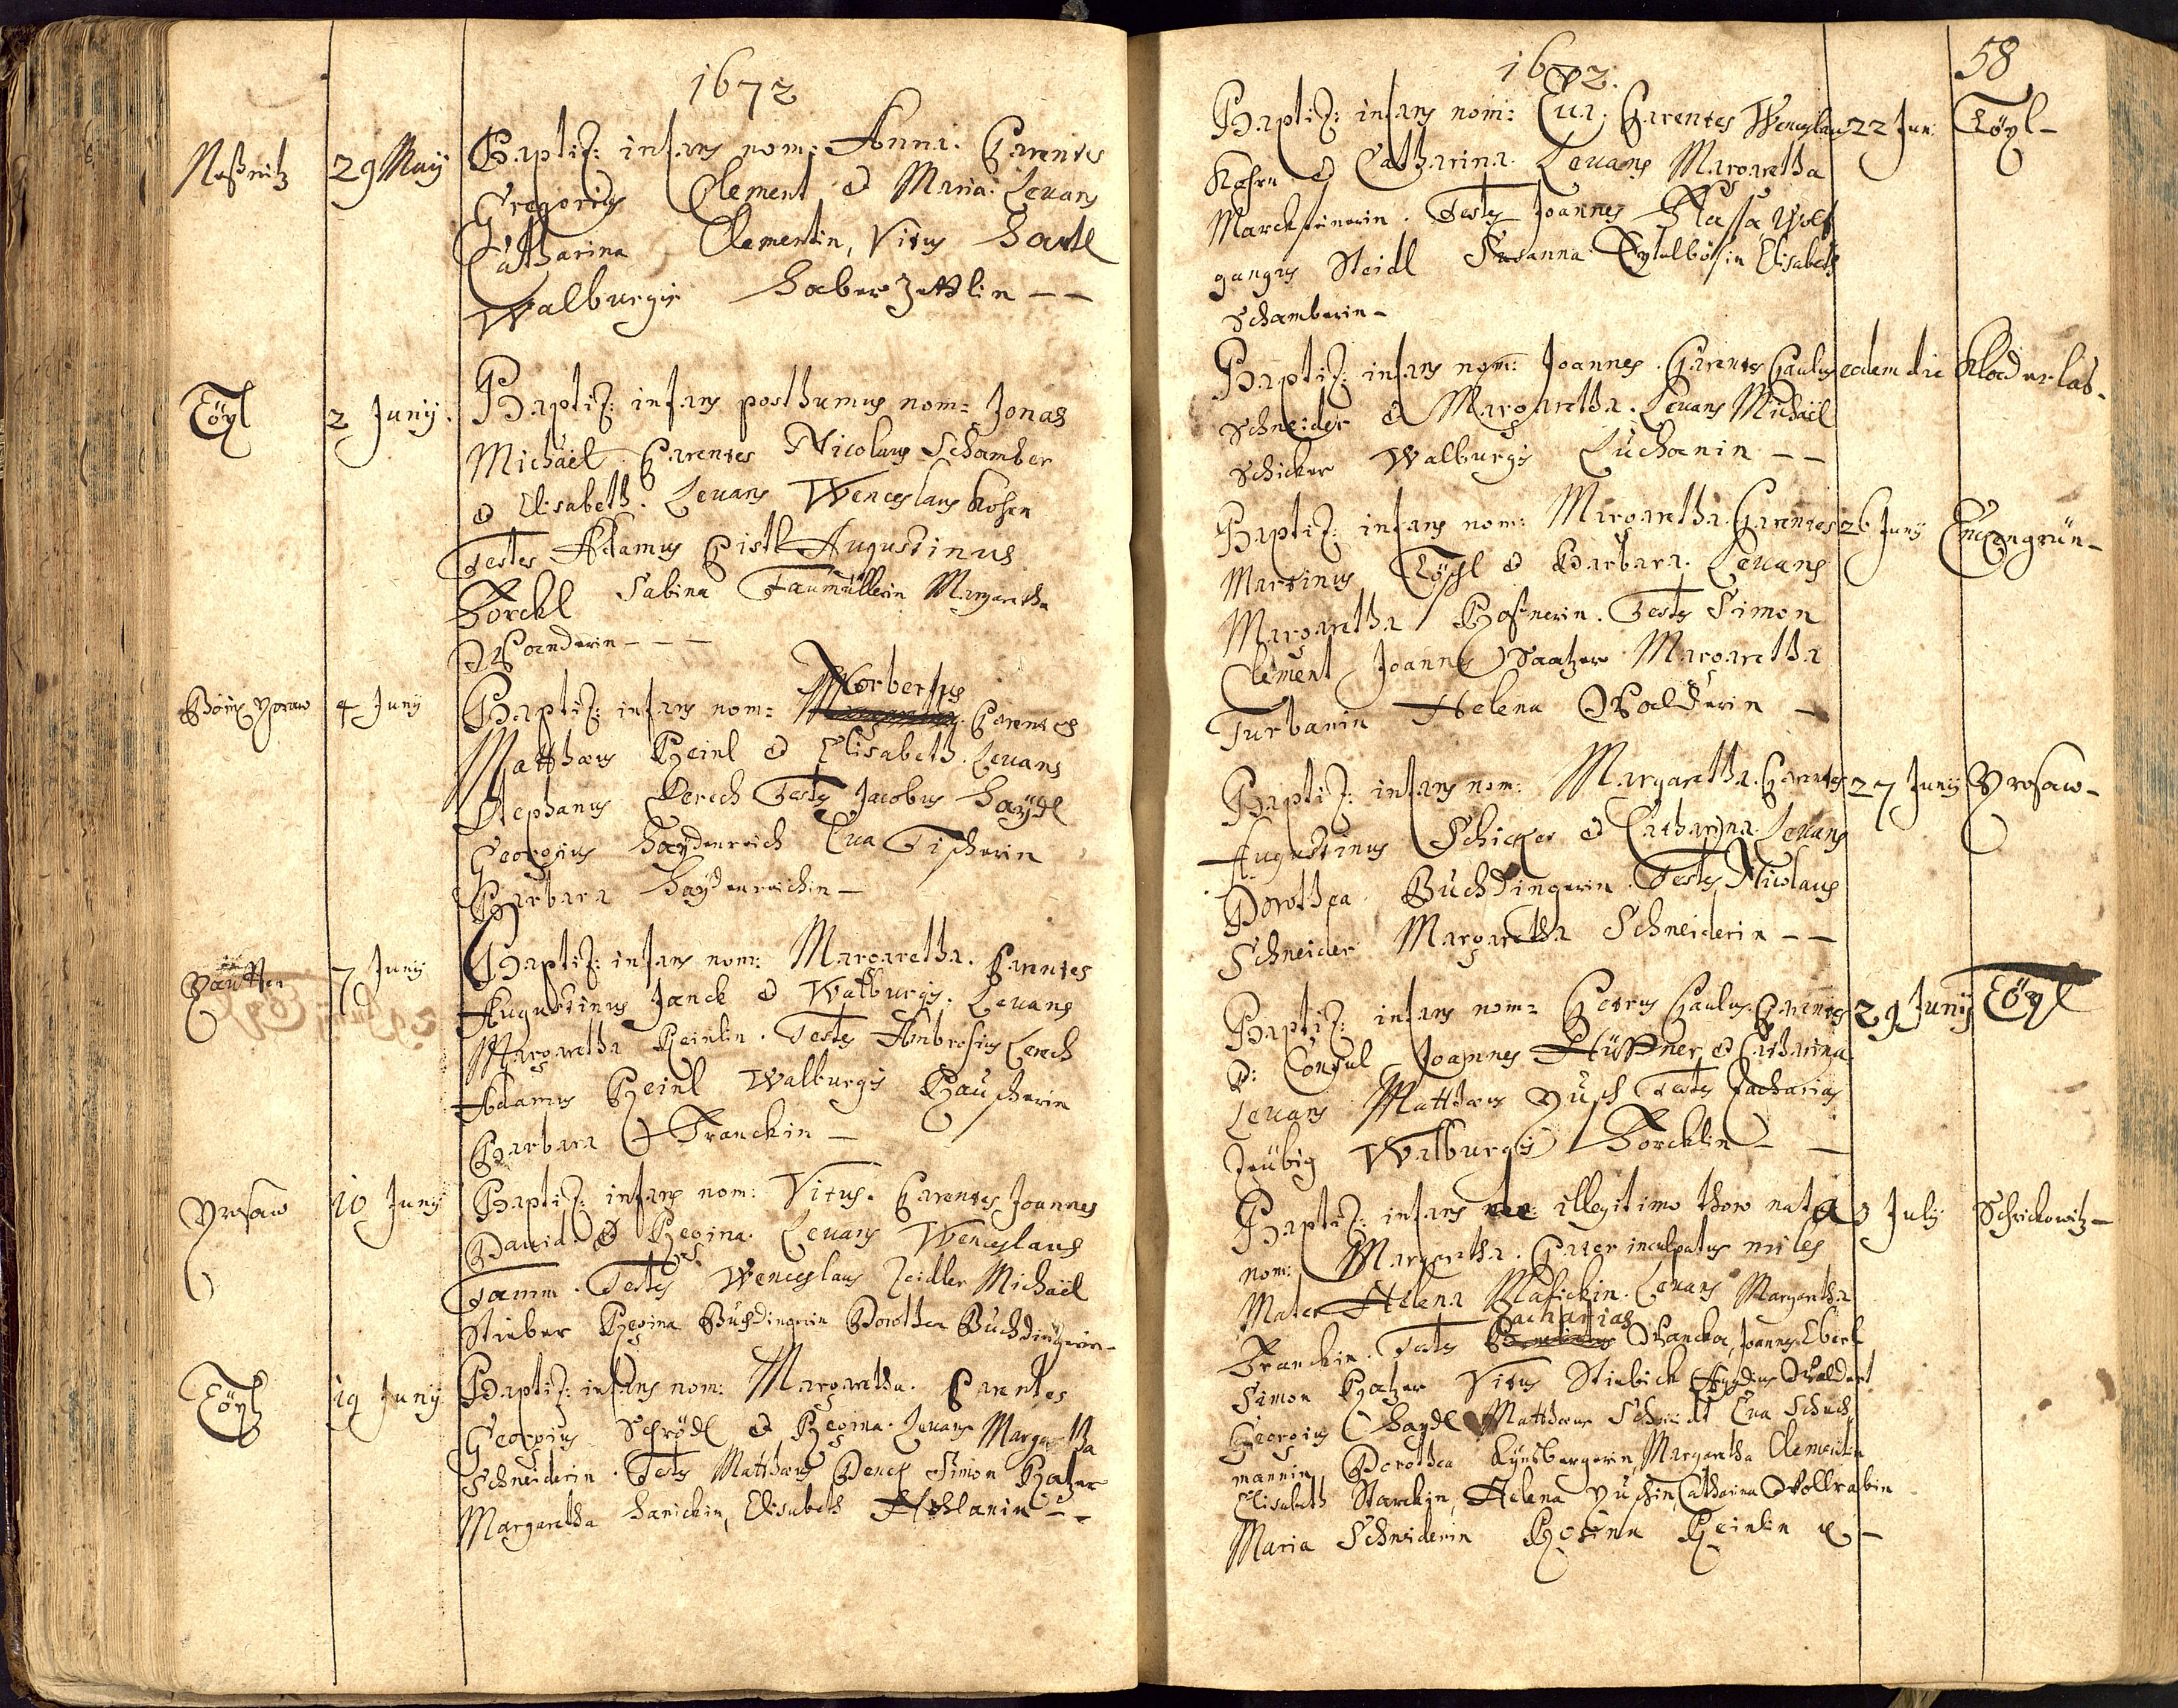 1672
Neßnitz 29 May Baptiz: infans nom: Anna. Parentes
Gregorius Clement & Maria. Levans
Catharina Clementin, Vitus Hartl
Walburgis Haberzettlin --
Töpl 2 Junij. Baptiz: infans posthumus nom: Jonas
Michäel. Parentes Nicolaus Schamber
& Elisabeth. Levans Wenceslaus Kohen
Testes Adamus Pistl Augustinus
Horckl Sabina Taumüllerin Margaretha
Wanderin ---
4 Junij Norbertus
Baptiz: infans nom: Parentes
Matthæus Heinl & Elisabeth. Levans
Stephanus Lerech Testes Jacobus Haÿdl
Georgius Haydenreich Eva Tischerin
Barbara Haydenreichin -
7 Junij Baptiz: infans nom: Margaretha. Parentes
Augustinus Janck & Walburgis. Levans
Margaretha Heinlin. Testes Ambrosius Lerech
Adamus Heinl Walburgis Hauscherin
Barbara Franckin -
Prosaw 10 Junij Baptiz: infans nom: Vitus. Parentes Joannes
David & Regina. Levans Wenceslaus
Tamm. Testes Wenceslaus Zeidler Michäel
Stieber Regina Buchdingerin Dorothea Buchdingerin -
Töpl 19 Junij Baptiz: infans nom: Margaretha. Parentes
Georgius Schrödl & Regina. Levans Margaretha
Schneiderin. Testes Matthæus Denck Simon Hatzer
Margaretha Hanickin, Elisabeth --
1672. 58
Baptiz: infans nom: Eva. Parentes Wenceslaus 22 Jun: Töpl -
Kohen & Catharina. Levans Margaretha
Marcksteinerin. Testes Joannes Klassa Wolf
gangus Steidl Susanna Elisabeth
Schamberin -
Baptiz: infans nom: Joannes. Parentes Paulus eadem die Kloderlas.
Schneider & Margaretha. Levans Michäel
Schicker Walburgis Luchanin --
Baptiz: infans nom: Margaretha. Parentes 26 Junij Enzengrün -
Martinus Töppl & Barbara. Levans
Margaretha Hosnerin. Testes Simon
Clement Joannes Saatzer Margaretha
Turbanin Helena Walderin -
Baptiz: infans nom: Margaretha. Parentes 27 Junij Prosaw -
Augustinus Schicker & Catharina. Levans
Dorothea Buchdingerin. Testes Nicolaus
Schneider Margaretha Schneiderin --
Baptiz: infans nom: Petrus Paulus. Parentes 29 Junij Töpl
D: Consul Joannes Hüttner & Catharina
Levans Matthæus Pusch Testes Zacharias
Zeubig Walburgis Horcklin -
Baptiz: infans illegitimo thoro nata 3 July Schrickowitz -
nom: Margaretha. Pater inculpatus miles
Mater Helena Masickin. Levans Margaretha
Zacharias
Franckin. Testes Wancka, Joannes Eberl
Simon Hatzer Vitus Stiebich Ægydius Waldert
Georgius Haydl Matthæus Schmidt Eva Schuch
mannin, Dorothea Künsbergerin, Margaretha Clementin
Elisabeth Starckin, Helena Puschin, Catharina Vollrabin
Maria Schneiderin Rosina Heinlin &c -